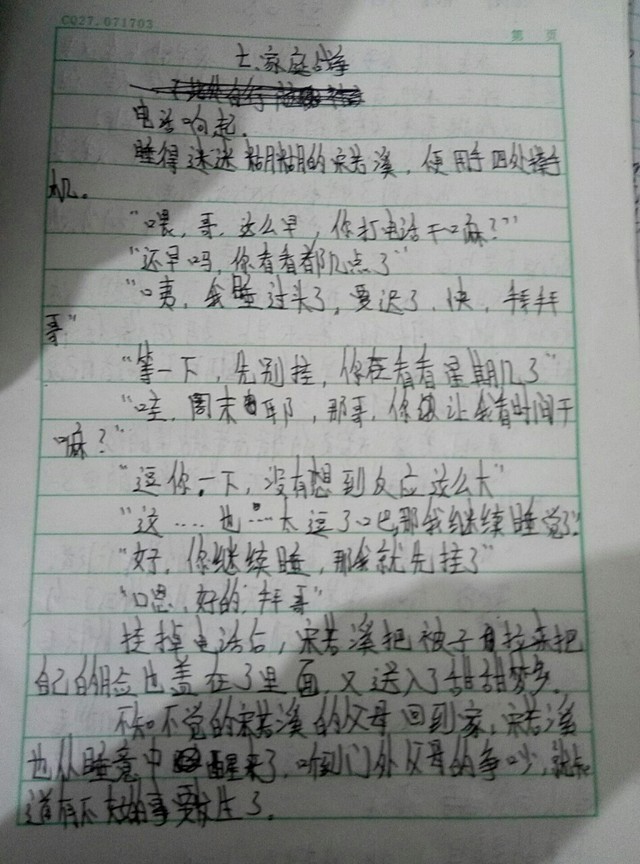 CQ27.071703
第 页
七.家庭战争
电话响起.
睡得迷迷糊糊的宋若溪，便用手四处摸手
机。
“喂，哥，这么早，你打电话干嘛？”
“还早吗，你看看都几点了”
“咦，我睡过头了，要迟了，快，拜拜
哥”
“等一下，先别挂，你在看看星期几了”
“哇，周末耶，那哥，你还让我看时间干
嘛？”
“逗你一下，没有想到反应这么大”
“这……也……太逗了吧，那我继续睡觉了”
“好，你继续睡，那我就先挂了”
“嗯，好的，拜哥”
挂掉电话后，宋若溪把被子拉来把
自己的脸也盖在了里面，又送入了甜甜梦乡.
不知不觉的宋若溪的父母回到家，宋若溪
也从睡意中醒来了，听到门外父母的争吵，就知
道有不好的事要发生了.